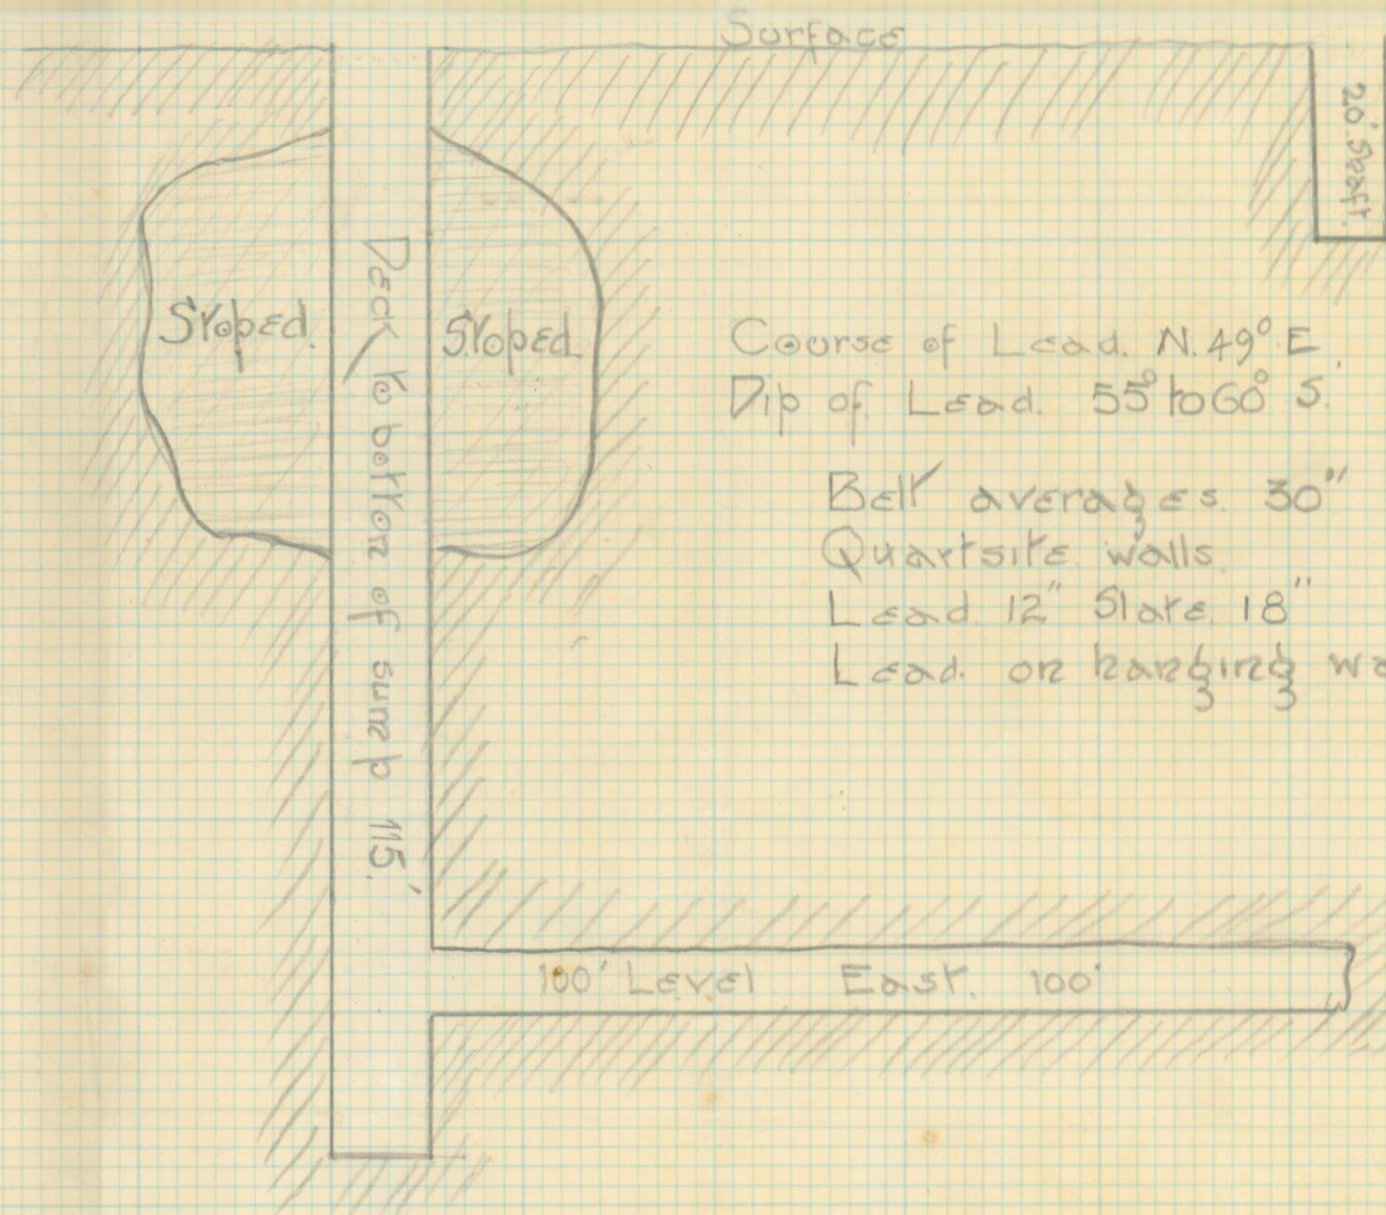 Surface
20' Shaft.
Stoped.
Deck to bottom of sump 115'
Stoped
Course of Lead. N. 49° E.
Dip of Lead. 55° to 60° S.
Belt averages. 30"
Quartsite walls.
Lead 12" Slate 18"
Lead. on hanging
100' Level East. 100'